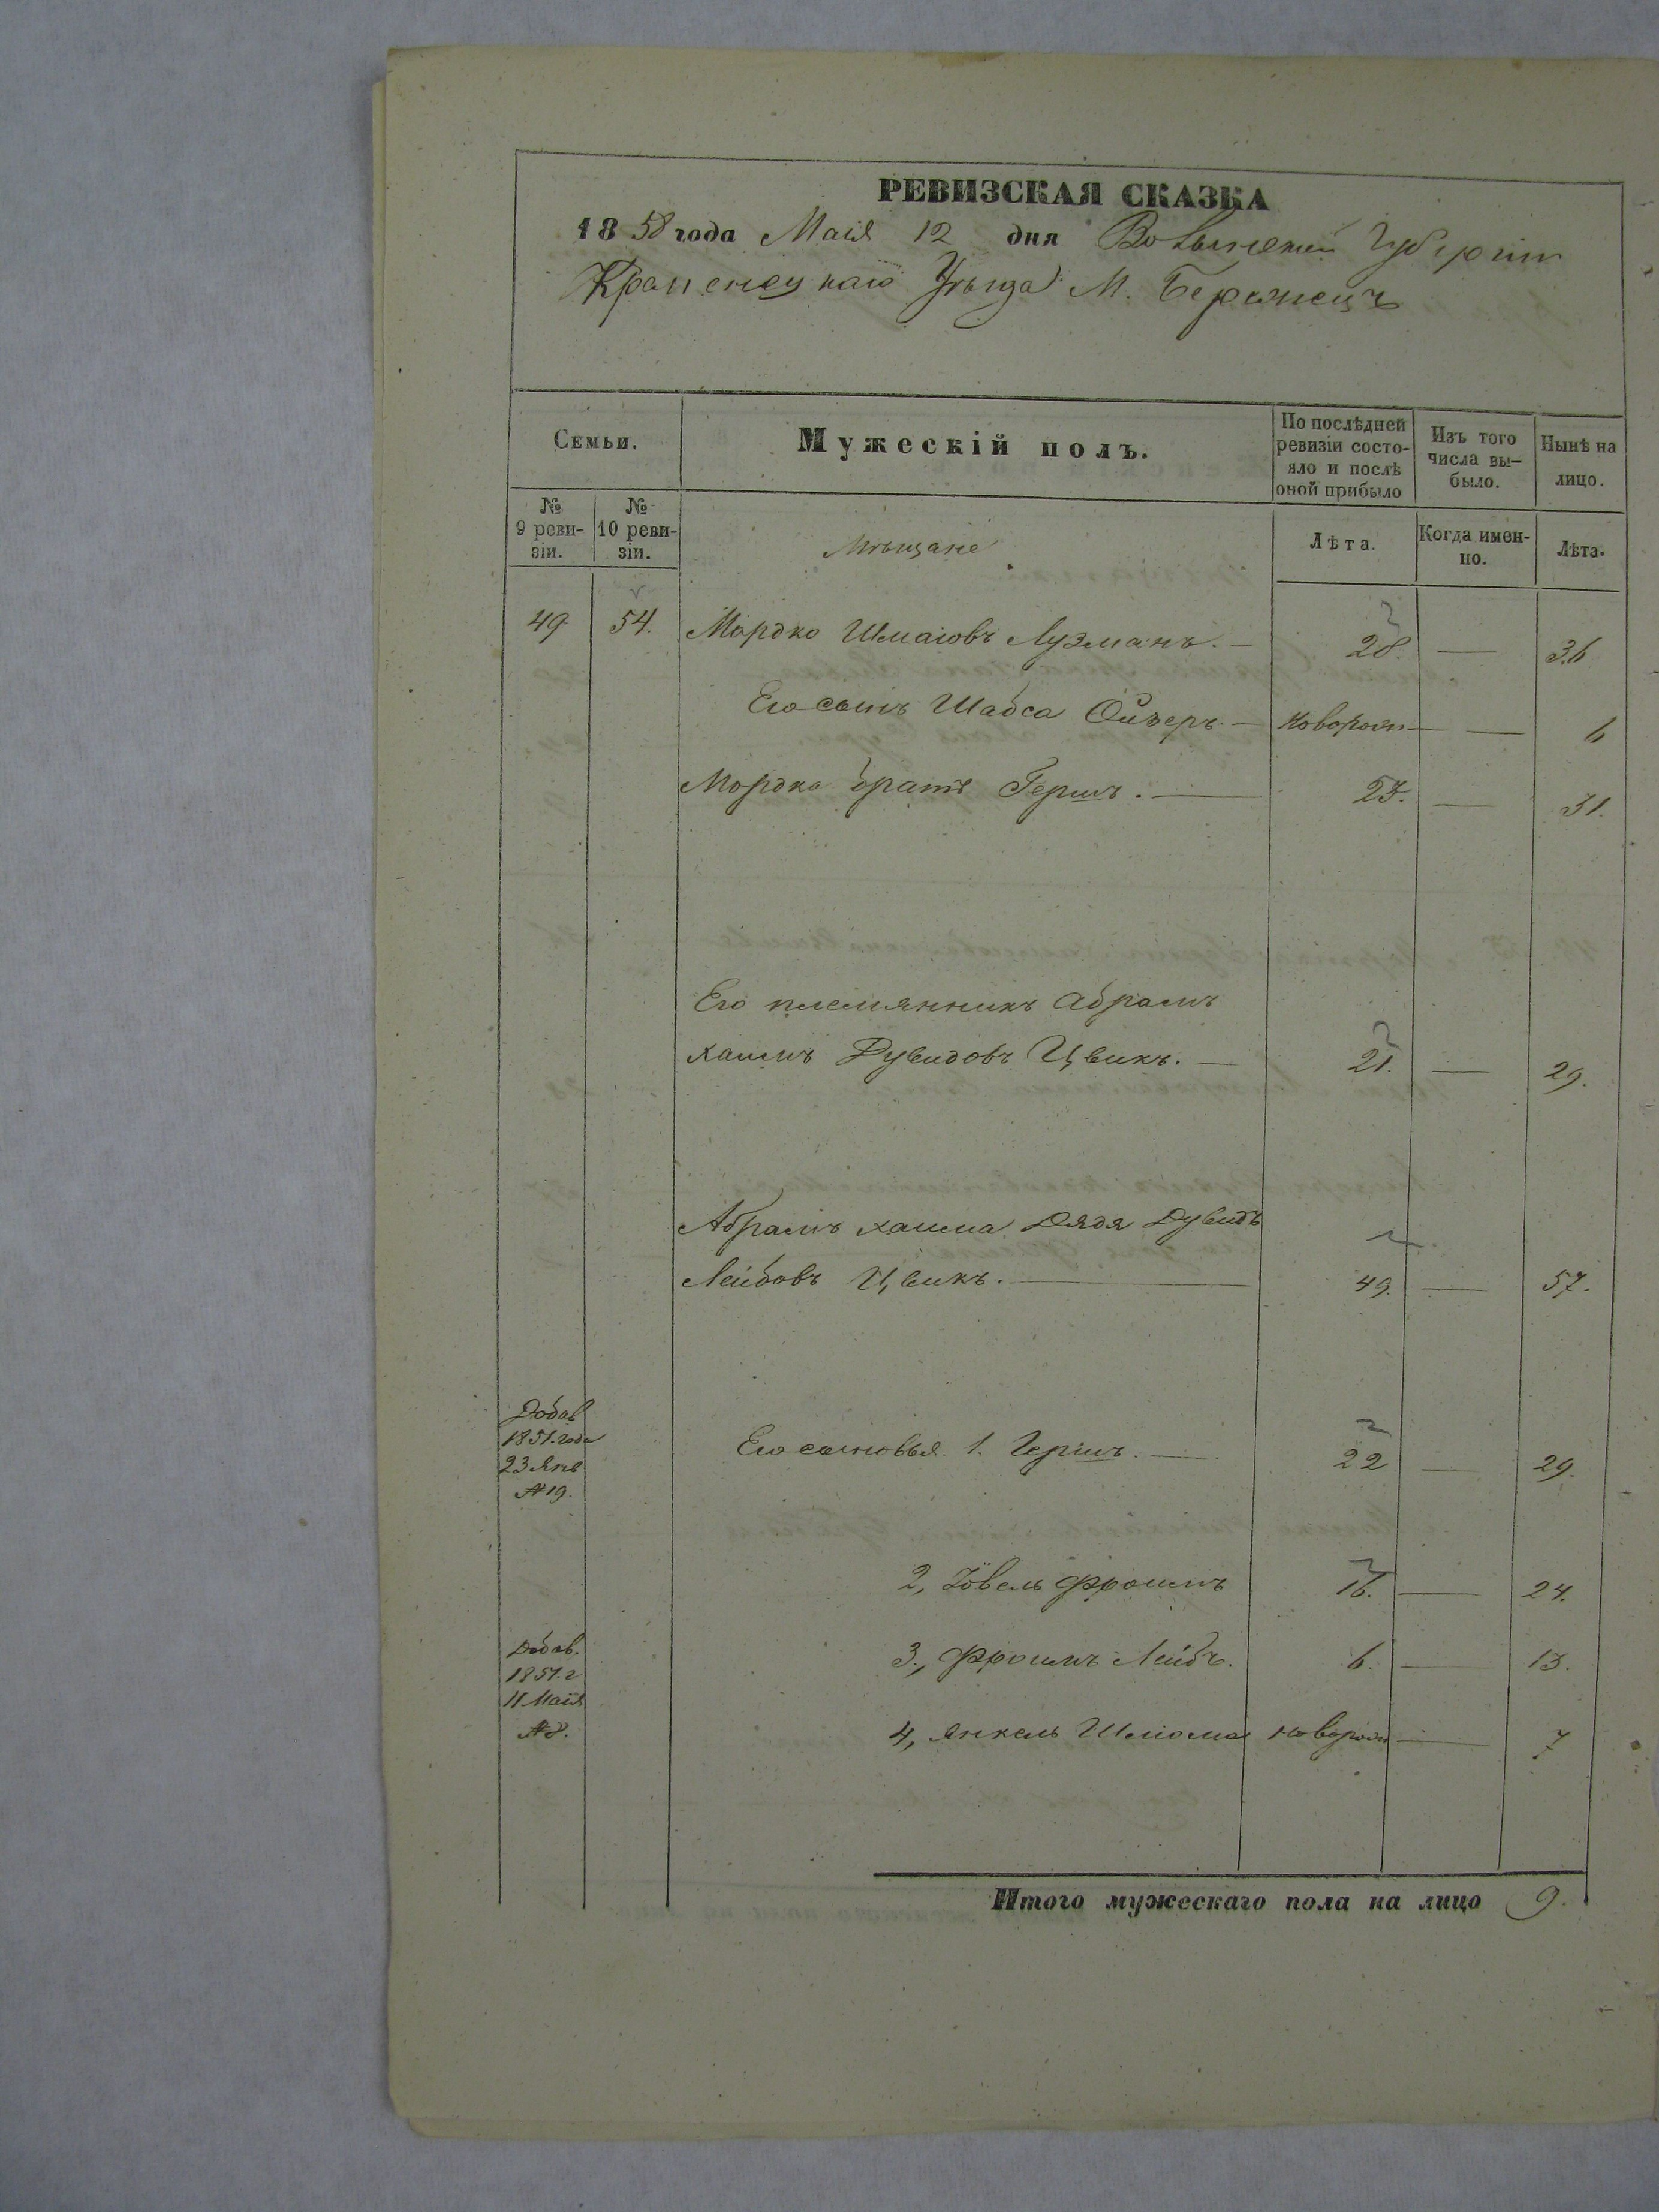 РЕВИЗСКАЯ СКАЗКА
1858 года Маія 12 дня Волынской Губерніи
Кременецкаго Уѣзда М. Бережецъ
Семьи.
Мужескій полъ.
По послѣдней ревизіи состо-
яло и послѣ
оной прибыло
Изъ того
числа вы-
было.
Нынѣ на
лицо.
№
9 реви-
зіи.
№
10 реви-
зіи.
Мѣщане
Лѣта.
Когда имен-
но.
Лѣта.
49 54. Мордко Шмаіовъ Лузманъ. — 28. — 36
Его сынъ Шабса Ойзеръ. — Новорож — — 6
Мордка братъ Гершъ. — 23. — 31.
Его племянникъ Абрамъ
Хаимъ Дувидовъ Цвикъ. — 21. — 29.
Абрамъ Хаима Дядя Дувидъ
Лейбовъ Цвикъ. — 49. — 57.
Добав
1851. года
23 Янв
№ 19.
Его сыновья 1. Гершъ. — 22 — 29.
2, Іовель Фроимъ 16. — 24.
Добав.
1851. г
11 Маія
№ 8.
3., Фроимъ Лейбъ. 6. — 13.
4, Янкель Шлиома Новорож — 7
Итого мужескаго пола на лицо 9.